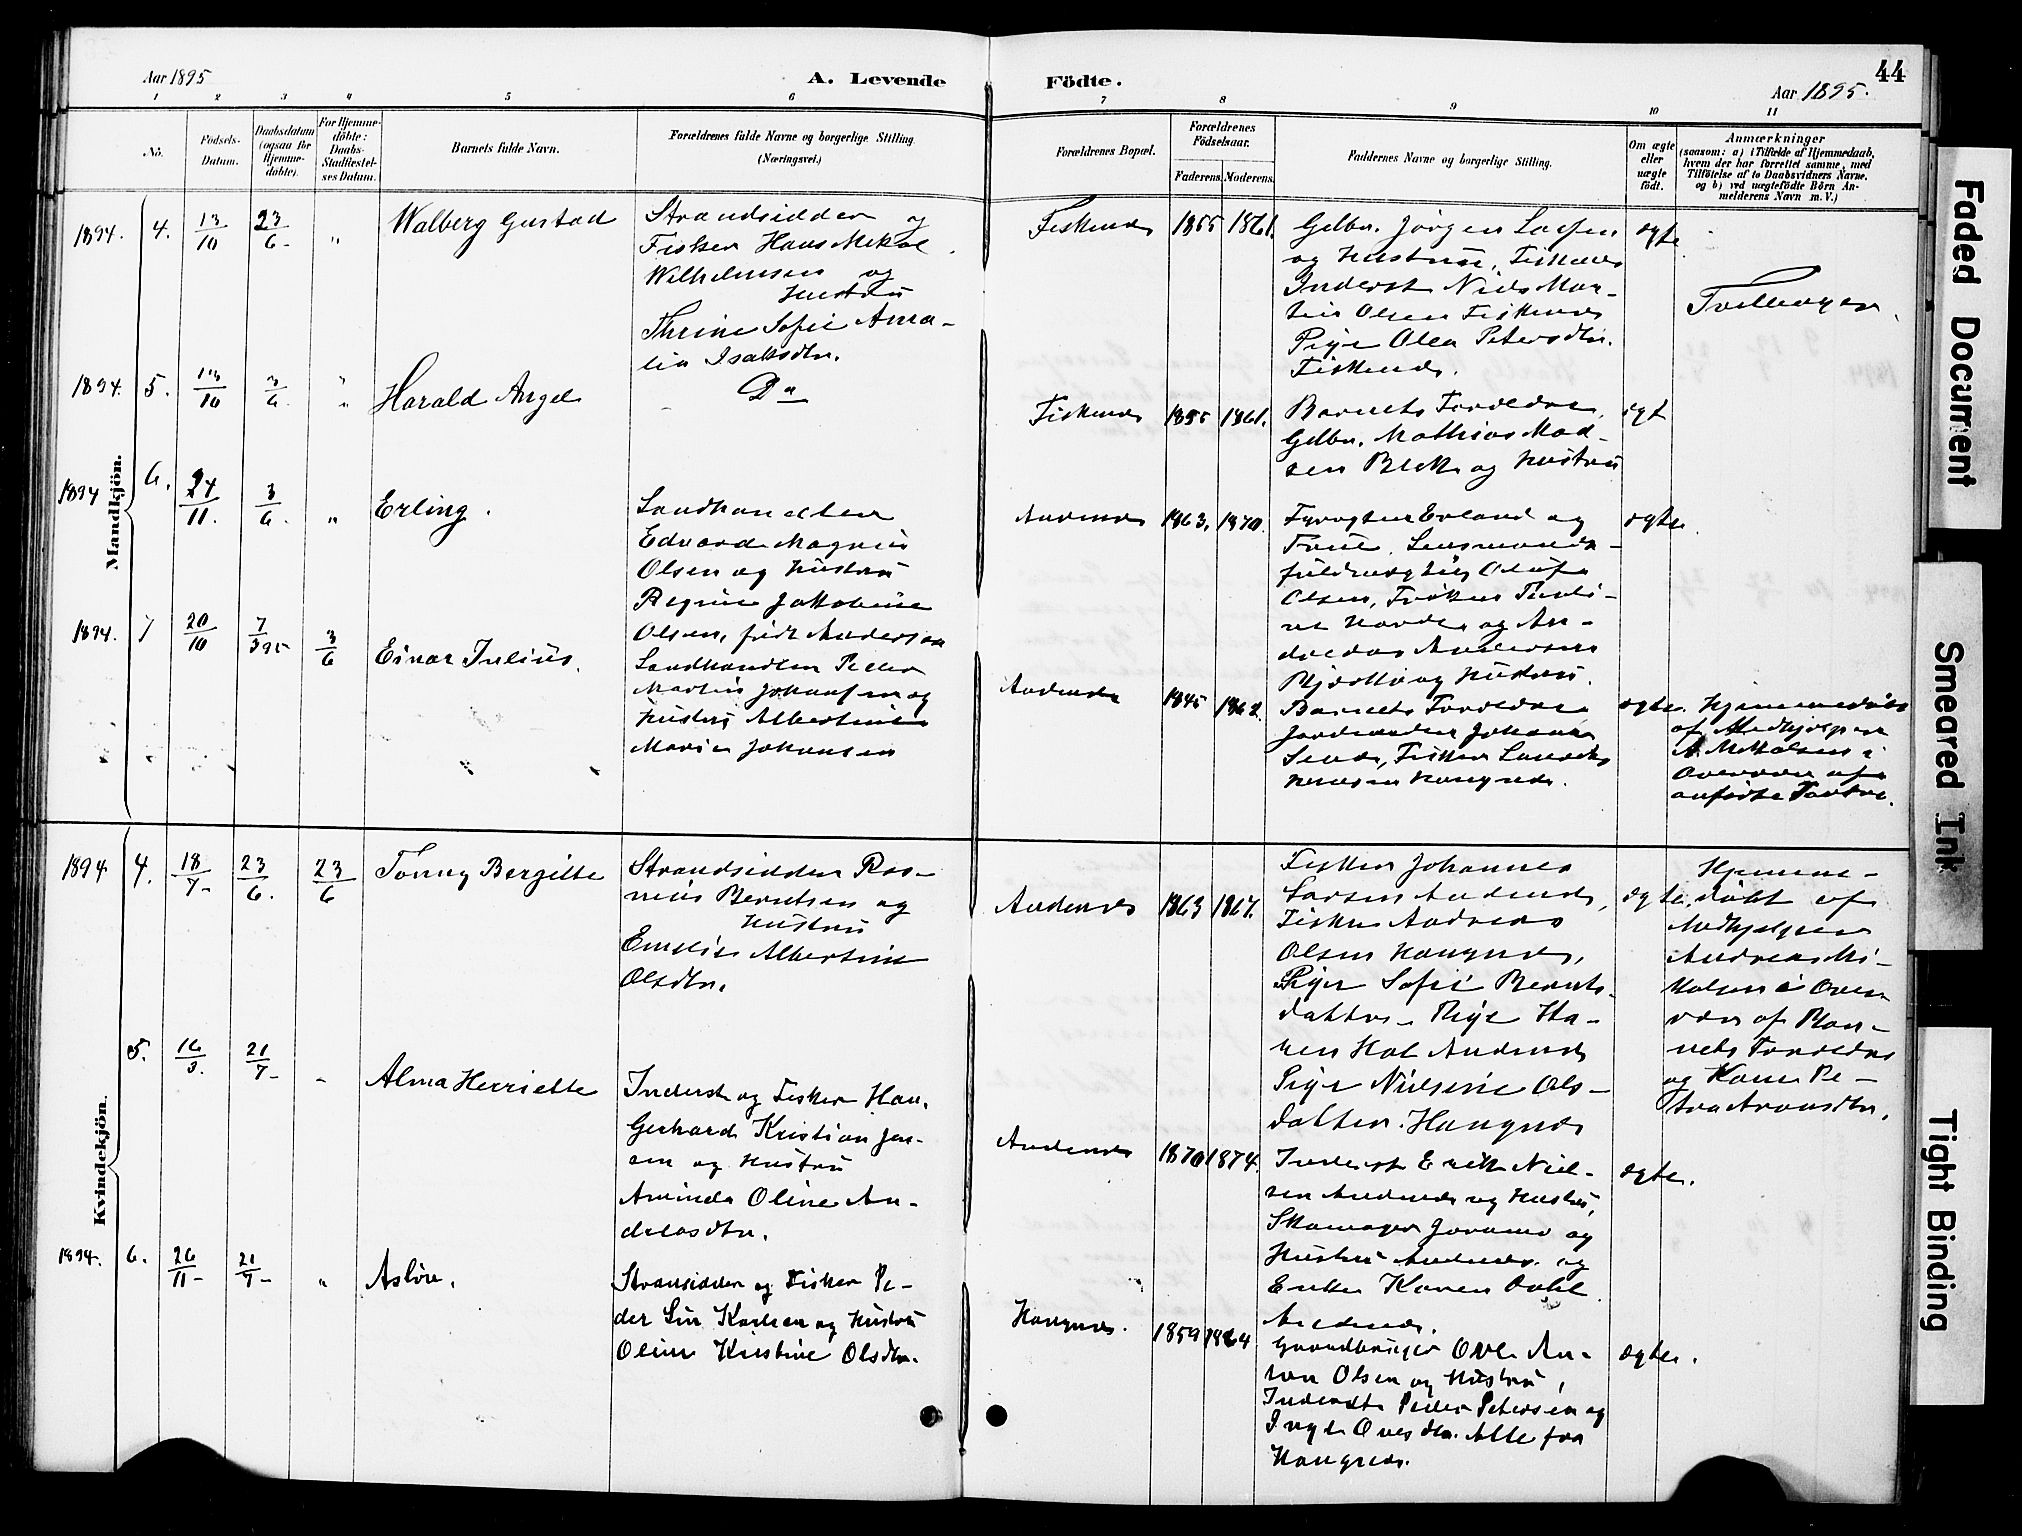 44
Aar 1895
A. Levende
Födte.
Aar 1895.
1 2 3 4 5 6 7 8 9 10 11
No.
Födsels-Datum.
Daabsdatum (ogsaa for Hjemme-døbte).
For Hjemme-døbte: Daabs-Stadfestel-ses Datum.
Barnets fulde Navn.
Forældrenes fulde Navne og borgerlige Stilling. (Næringsvei.)
Forældrenes Bopæl.
Forældrenes Födselsaar.
Faderens. Moderens.
Faddernes Navne og borgerlige Stilling.
Om ægte eller uægte født.
Anmærkninger
(saasom: a) i Tilfælde af Hjemmedaab,
hvem der har forrettet samme, med
Tilföielse af to Daabsvidners Navne,
og b) ved uægtefödte Börn An-
melderens Navn m. V.)
Mandkjön.
1894. 4. 13/10 23/6 " Walberg Gustad
Strandsidder og
Fisker Hans Mikal
Wilhelmsen og
Hustru
Thrine Sofie Ama-
lia Isaksdtr.
Fiskenes 1855 1861.
Gdbr. Jörgen
og Hustru, Fiskenes
Inderst Niels Mar-
tin Olsen Fiskenes
Pige Olea Petersdtr.
Fiskenes.
ægte
Tvillinger.
1894. 5. 13/10 3/6 " Harald Angel
Do
Fiskenes 1855 1861.
Barnets Forældre,
Gdbr. Mathias Mad-
sen Bleik og Hustru
ægt
1894 6. 24/11. 3/6. " Erling.
Landhandler
Edvard Magnus
Olsen og Hustru
Regine Jakobine
Olsen, født Andersen
Andenes 1863. 1870.
Fyrvogter Erland og
Frue, Lensmands-
fuldmægtig Olaf
Olsen, Frøken
og An-
dreas Andersen
og Hustru.
ægte.
1894. 7 20/10 7/3 95 3/6 Einar Julius.
Landhandler Peder
Martin Johansen og
Hustru Albertine
Marie Johansen
Andenes 1845 1862.
Barnets Forældre
Johan
Fisker
Haugnes.
ægte.
Hjemmedøbt
af Medhjelper
A. Mikalsen i
Overvær af
anførte Faddre.
Kvindekjön.
1894 4. 18/7- 23/6. 23/6 Tonny Bergitte
Strandsidder Ras-
mus Berntsen og
Hustru
Emelie Albertine
Olsdtr.
Andenes 1863 1867.
Fisker Johannes
Larsen Andenes,
Fisker Andreas
Olsen Haugnes,
Pige Sofie Bernts-
datter- Pige Ha-
Hol Andenes
Pige Nielsine Ols-
datter. Haugnes
ægte.
Hjemme-
døbt af
Medhjelper
Andreas Mi-
kalsen i Over-
vær af Bar-
nets Forældre
og Kone Pe-
tra Aronsdtr.
5. 16/3. 21/7- - Alma Henriette
Inderst og Fisker Han.
Gerhard Kristian Jen-
sen og Hustru
Aminda Oline An-
dreasdtr.
Andenes 1870 1874.
Inderst Erik Niel-
sen Andenes og Hustru,
Skomager og
Hustru Andenes. og
Enke Karen Dahl
Andenes.
ægte.
1894. 6. 26/11- 21/7- " Aslöv.
Strandsidder og Fisker Pe-
der Karlsen og Hustru
Oline Kristine Olsdtr.
Haugnes. 1859 1864
Gaardbruger Ove An-
ton Olsen og Hustru,
Inderst Peder Petersen og
Ovesdtr. Alle fra
Haugnes.
ægte.
Faded Document
Smeared Ink
Tight Binding